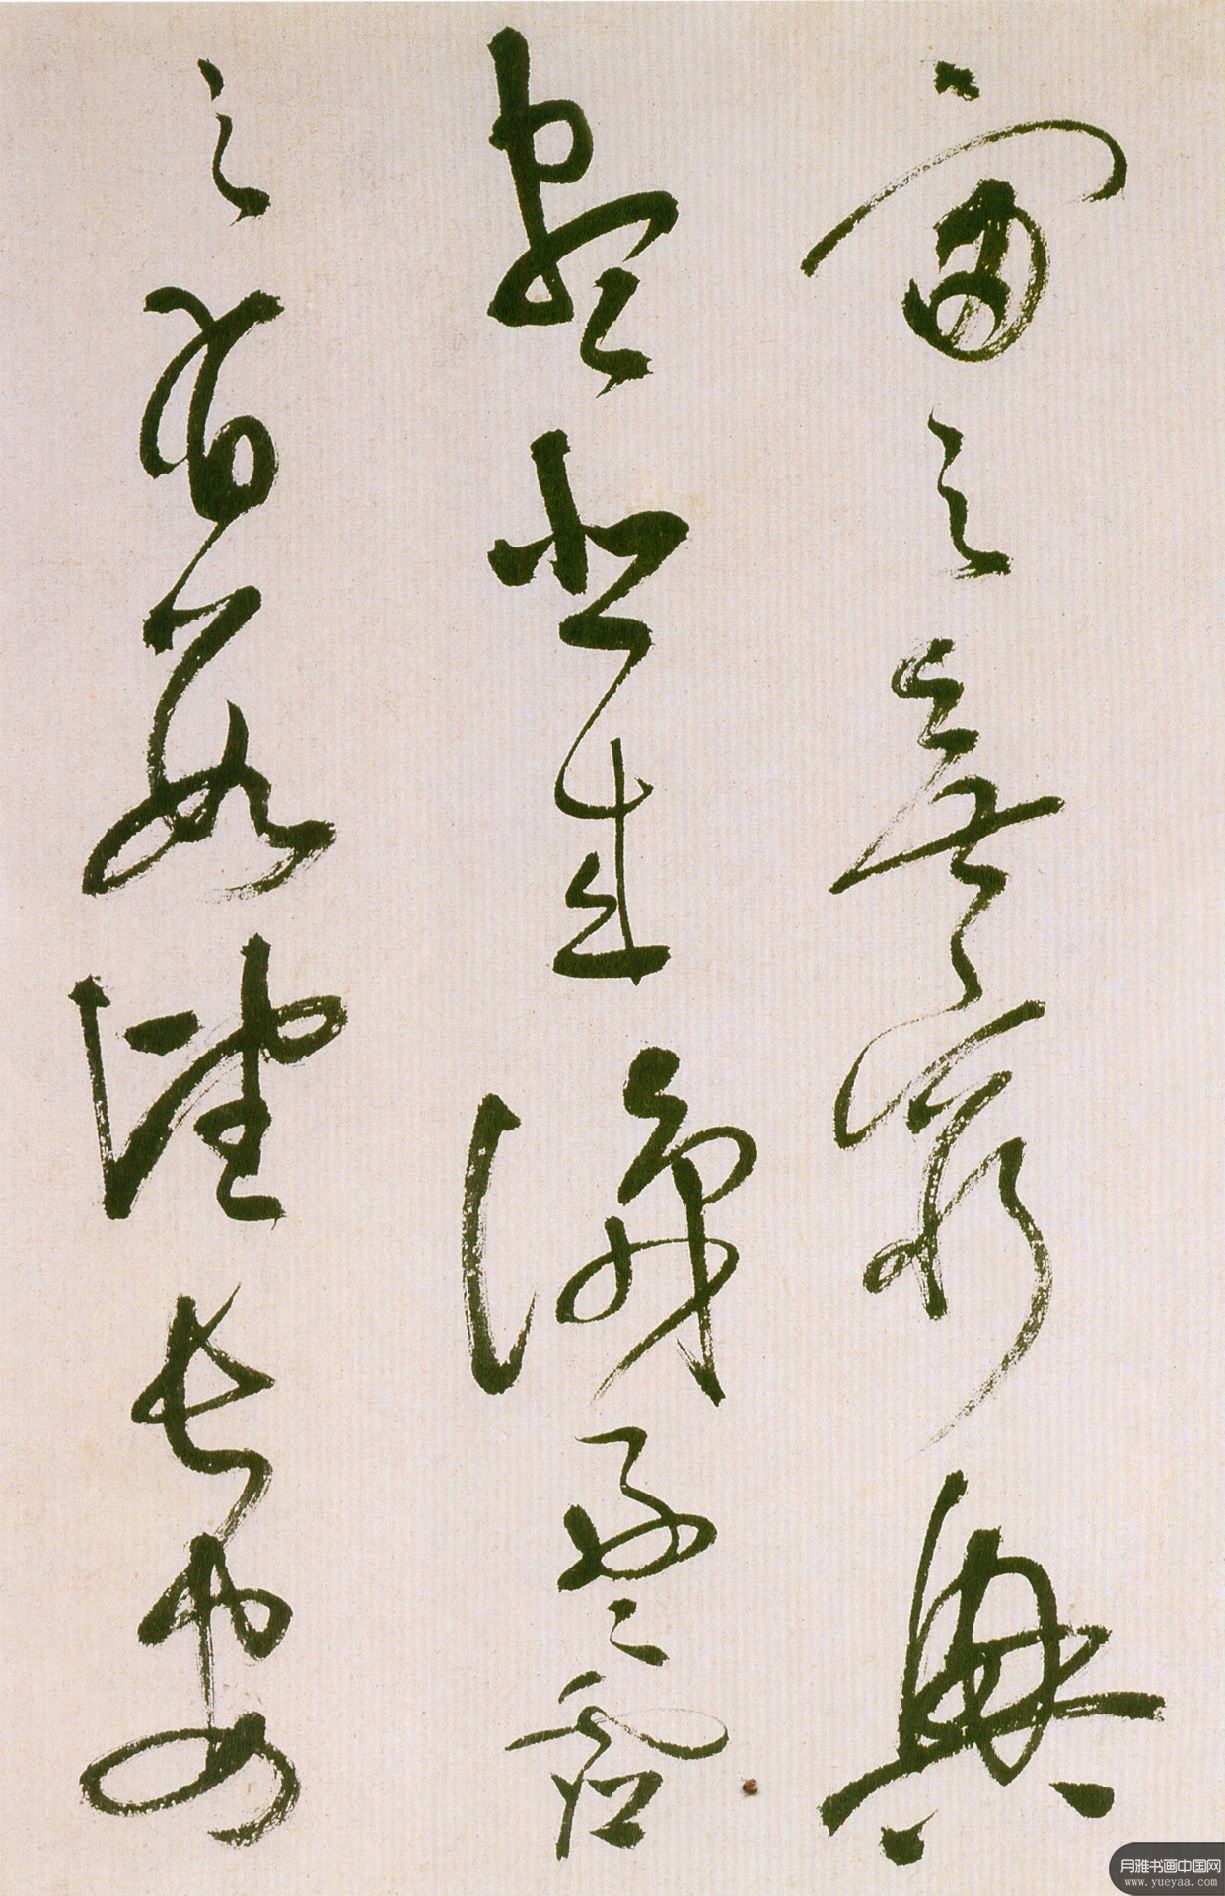 宙之無窮興
盡悲来識盈虚
之有數望長安
月雅书画中国网
www.yueyaa.com